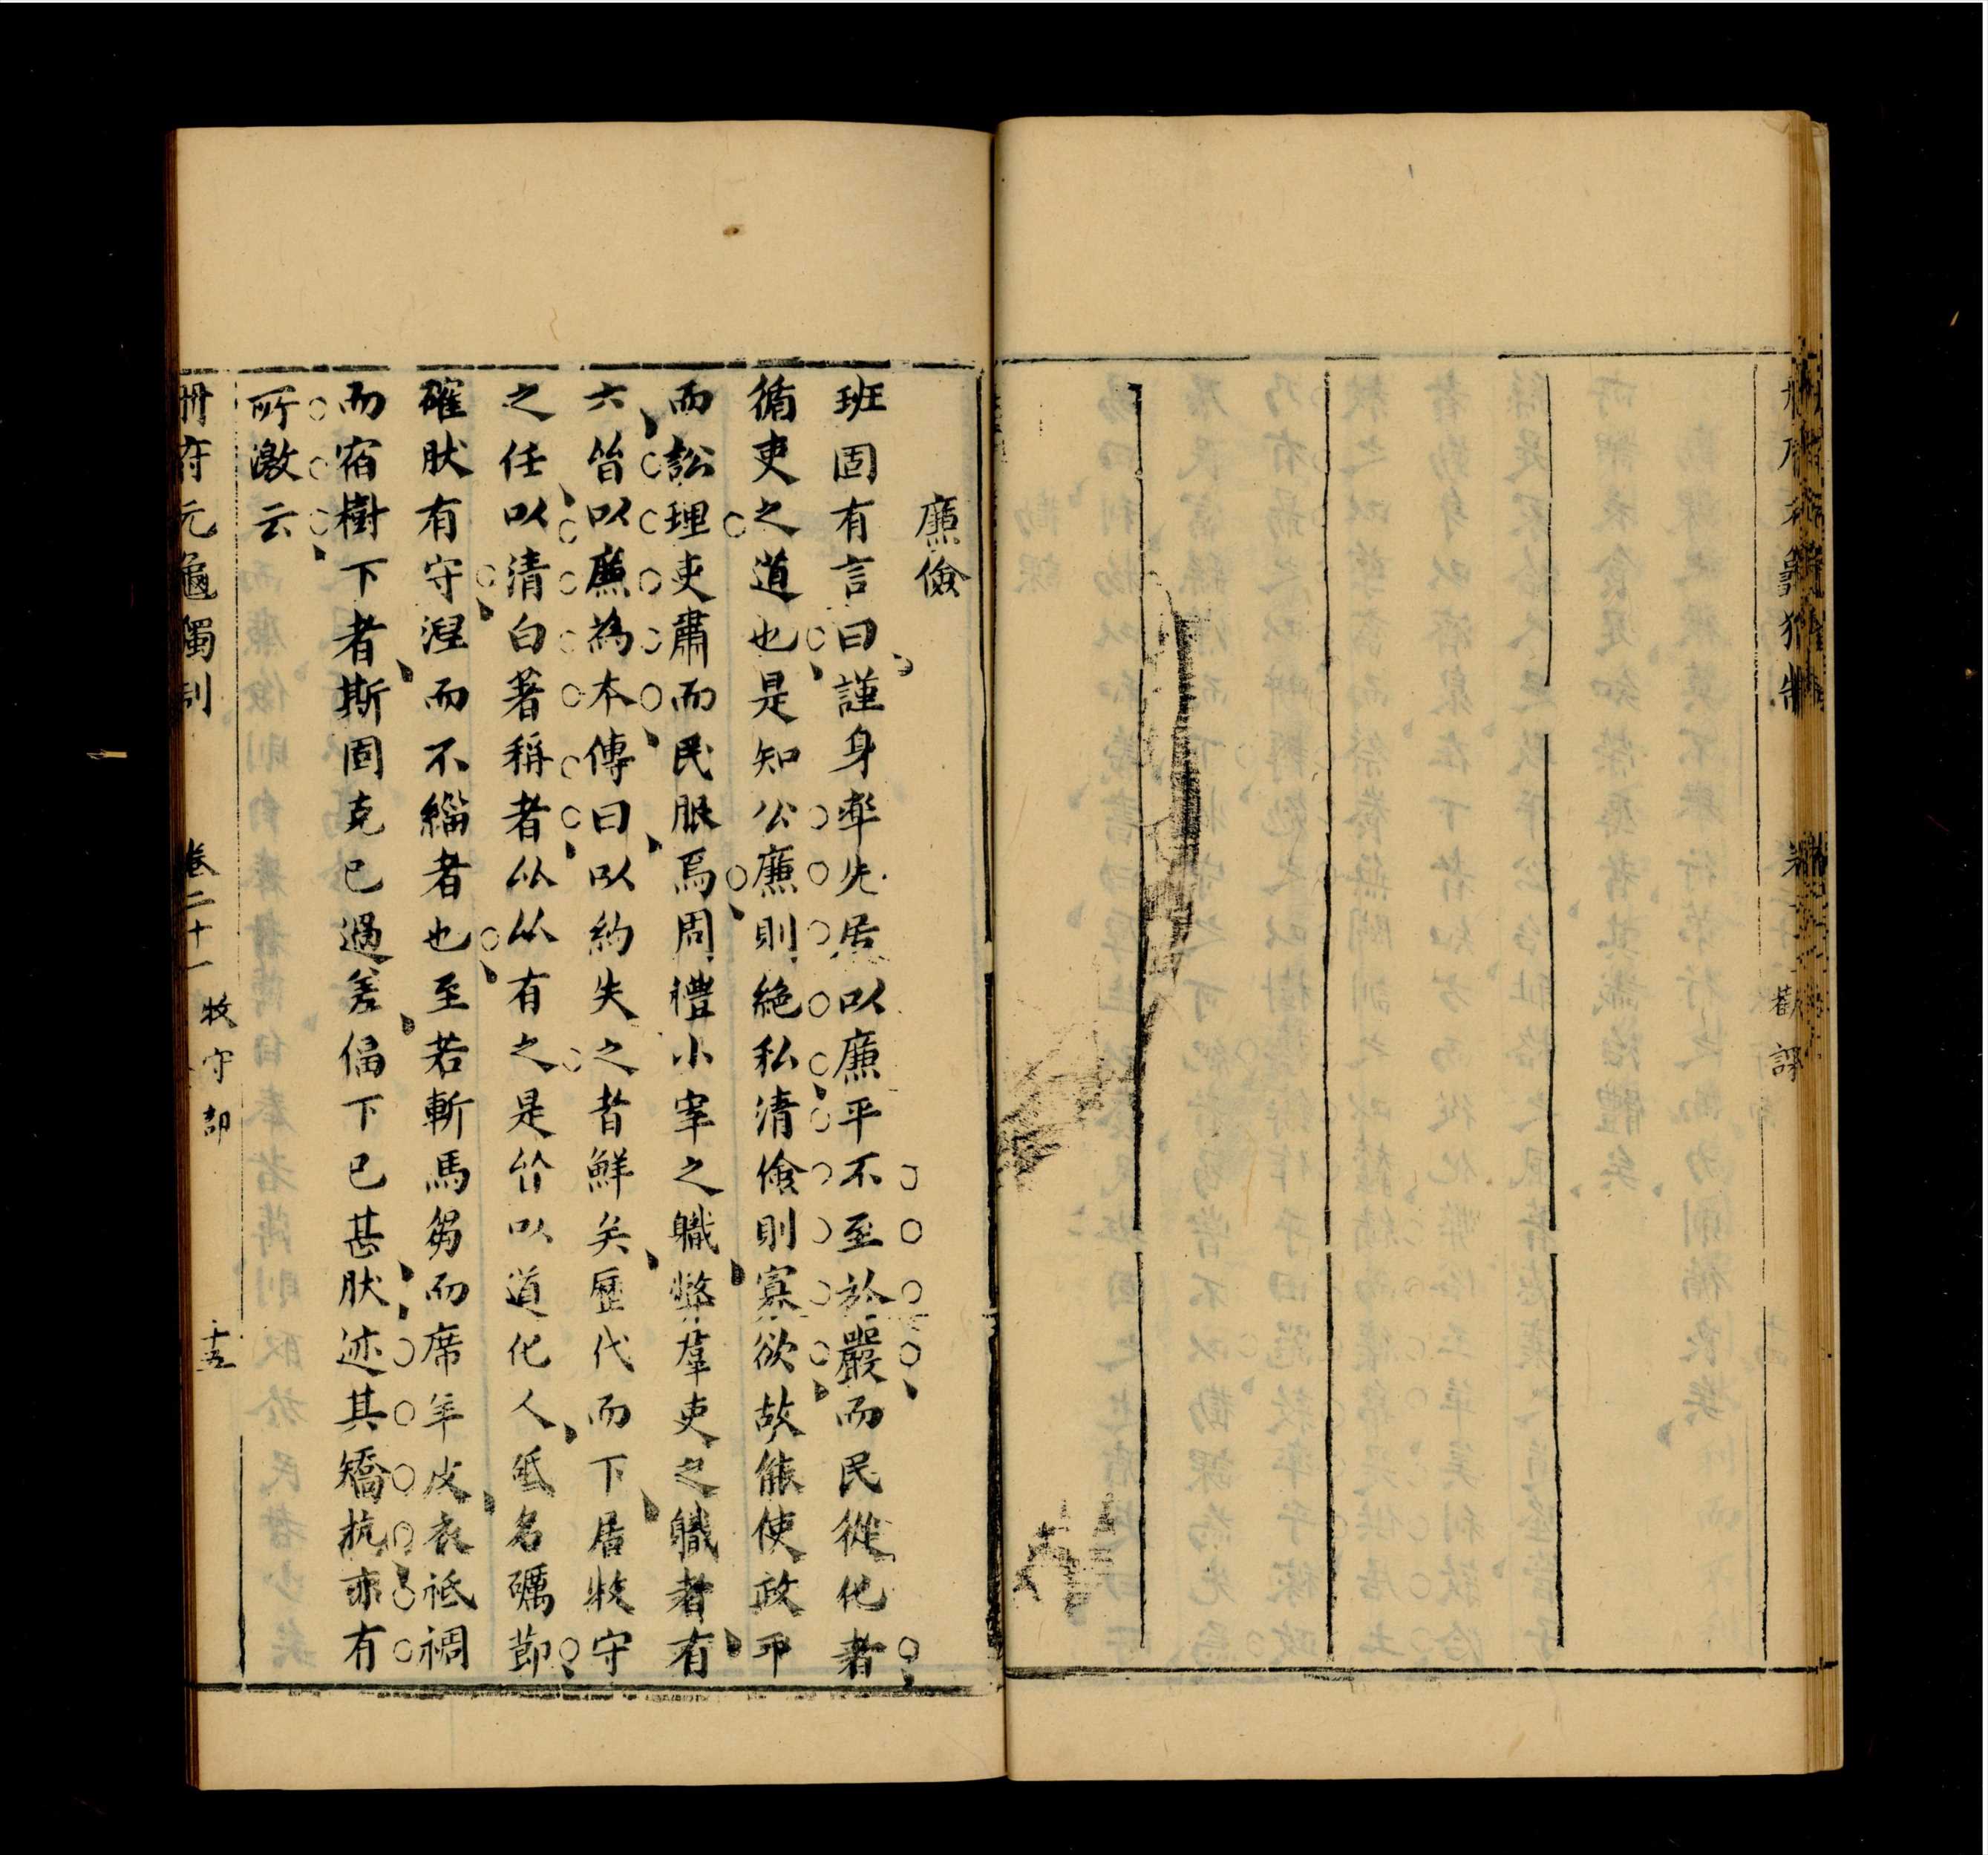 勸課
廉儉
班固有言曰謹身率先居以廉平不至於嚴而民從化者
循吏之道也是知公廉則絶私清儉則寡欲故能使政平
而訟理吏肅而民服焉周禮小宰之職弊羣吏之職者有
六皆以廉為本傳曰以約失之者鮮矣歷代而下居牧守
之任以清白著稱者比比有之是皆以道化人砥名礪節
確肰有守涅而不緇者也至若斬馬芻而席羊皮衣袛裯
而宿樹下者斯固克己過差偪下已甚肰迹其矯抗亦有
所激云
冊府元龜獨制 卷二十一 牧守部 十五